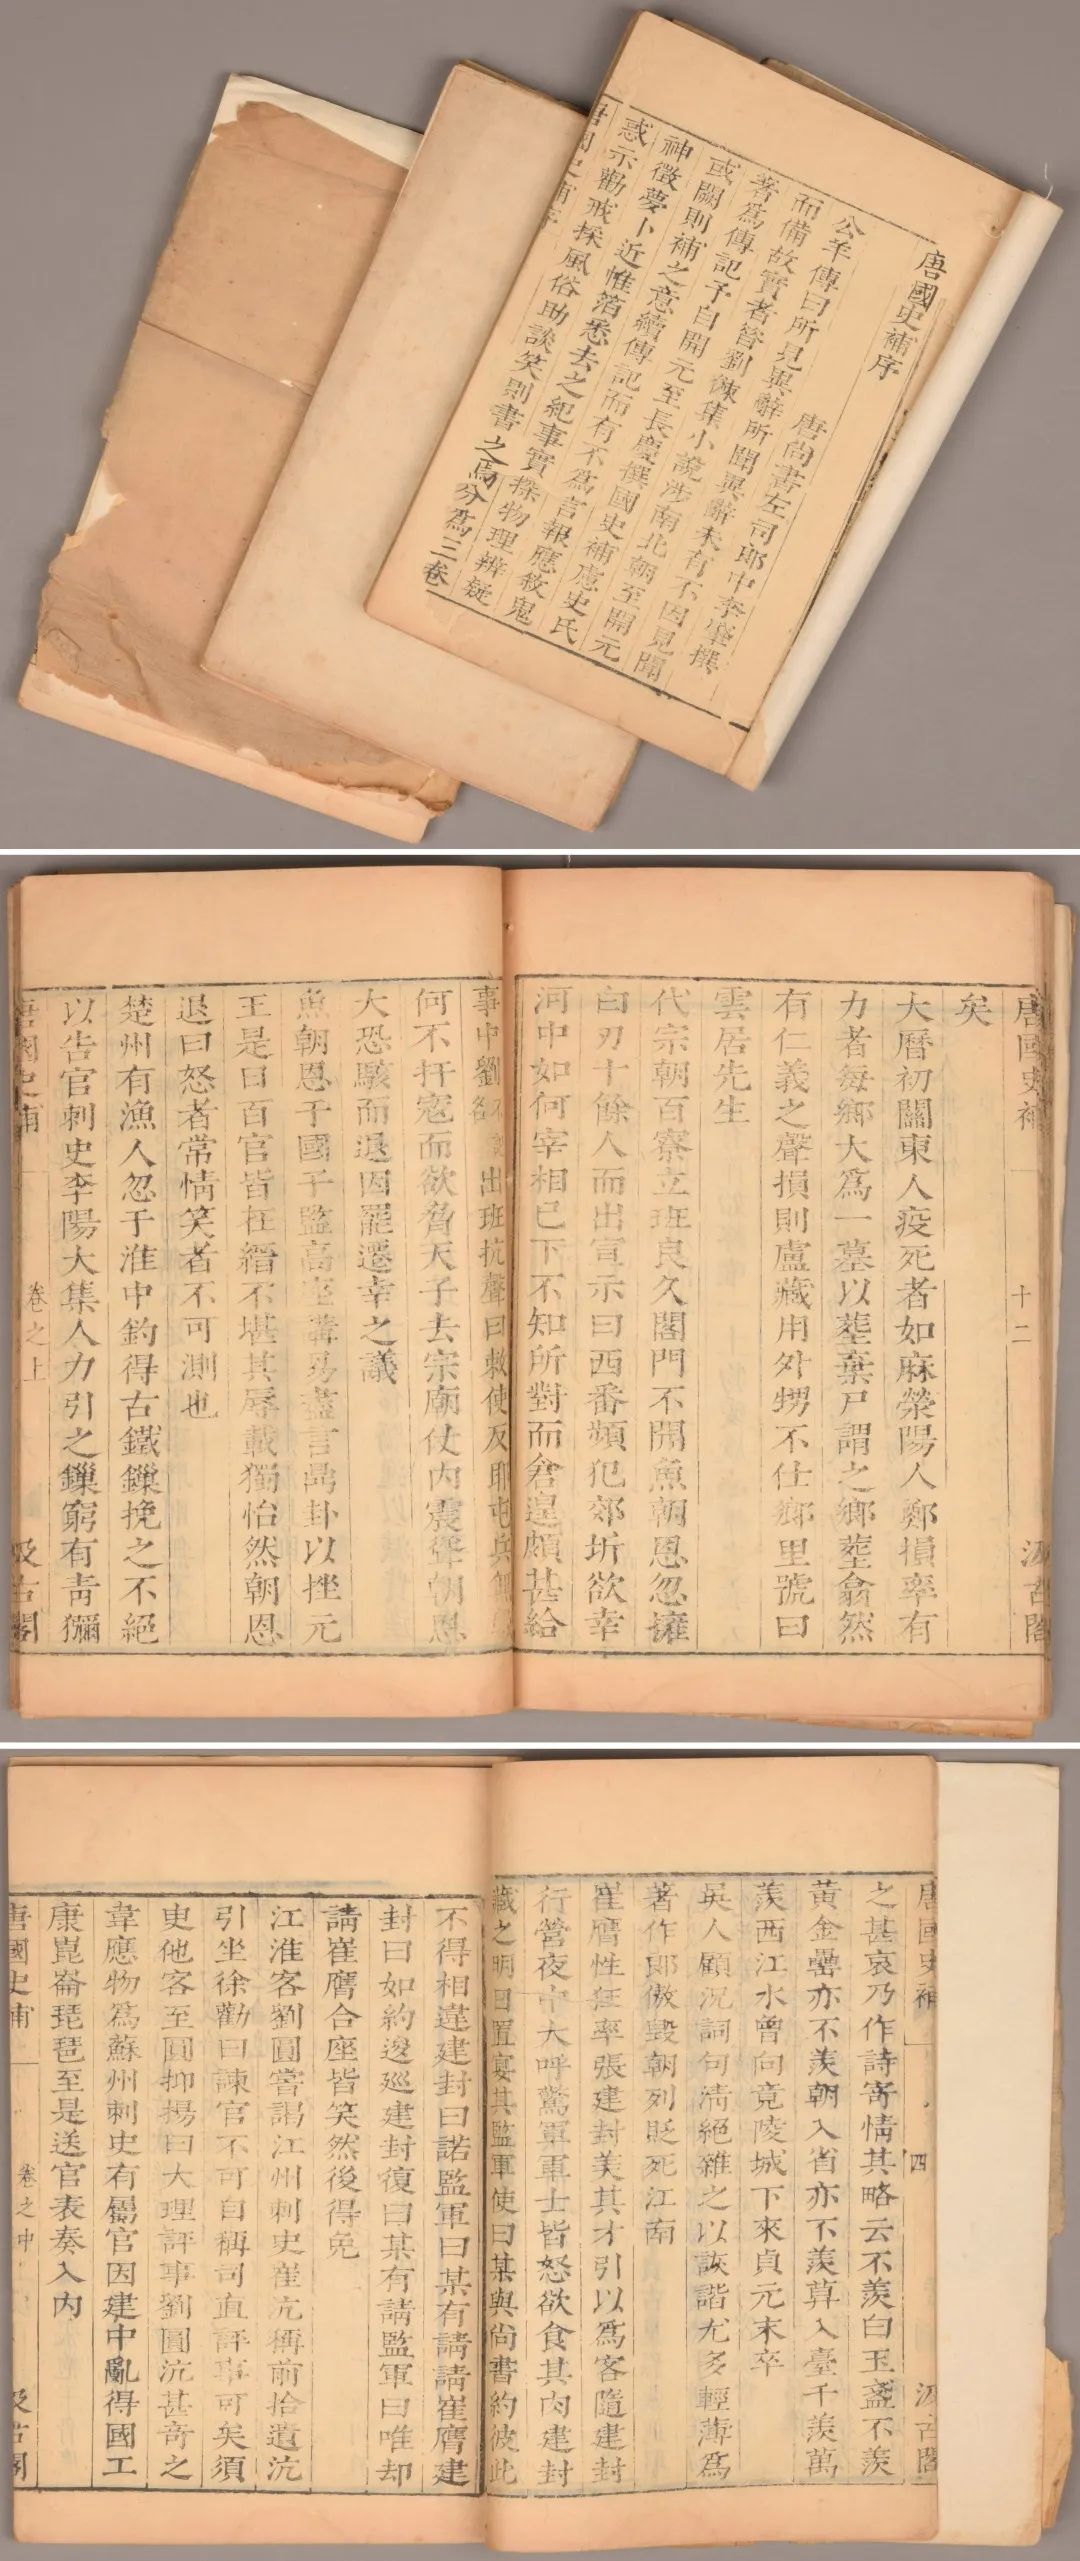 唐國史補序
唐尚書左司郎中李肇撰
公羊傳曰所見異辭所聞異辭未有不因見聞
而備故實者昔劉餗集小說涉南北朝至開元
著爲傳記予自開元至長慶撰國史補慮史氏
或闕則補之意續傳記而有不爲言報應敘鬼
神徵夢卜近帷箔悉去之紀事實探物理辨疑
惑示勸戒採風俗助談笑則書之焉分爲三卷
唐國史補序
唐國史補
十二
汲古閣
矣
大曆初關東人疫死者如麻滎陽人鄭損率有
力者每鄉大爲一墓以塟棄尸謂之鄉塟翕然
有仁義之聲損則盧藏用外甥不仕鄉里號曰
雲居先生
代宗朝百寮立班良久閣門不開魚朝恩忽擁
白刃十餘人而出宣示曰西番頻犯郊圻欲幸
河中如何宰相已下不知所對而倉遑頗甚給
事中劉出班抗聲曰敕使反耶屯兵無
何不扞寇而欲脅天子去宗廟仗內震聳朝恩
大恐駭而退因罷遷幸之議
魚朝恩于國子監高座講易盡言鼎卦以挫元
王是日百官皆在縉不堪其辱載獨怡然朝恩
退曰怒者常情笑者不可測也
楚州有漁人忽于淮中釣得古鐵鏁挽之不絕
以告官刺史李陽大集人力引之鏁窮有青獼
唐國史補
卷之上
汲古閣
唐國史補
四
汲古閣
之甚哀乃作詩寄情其略云不羨白玉盞不羨
黃金罍亦不羨朝入省亦不羨暮入臺千羨萬
羨西江水曾向竟陵城下來貞元末卒
吳人顧況詞句清絕雜之以詼諧尤多輕薄爲
著作郎傲毀朝列貶死江南
崔膺性狂率張建封美其才引以爲客隨建封
行營夜中大呼驚軍軍士皆怒欲食其肉建封
藏之明日置宴其監軍使曰某與尚書約彼此
不得相違建封曰諾監軍曰某有請請崔膺建
封曰如約逡巡建封復曰某有請監軍曰唯却
請崔膺合座皆笑然後得免
江淮客劉圓嘗謁江州刺史崔沆稱前拾遺沆
引坐徐勸曰諫官不可自稱司直評事可矣須
吏他客至圓抑揚曰大理評事劉圓沆甚奇之
韋應物爲蘇州刺史有屬官因建中亂得國工
康崑崙琵琶至是送官表奏入內
唐國史補
卷之中
汲古閣